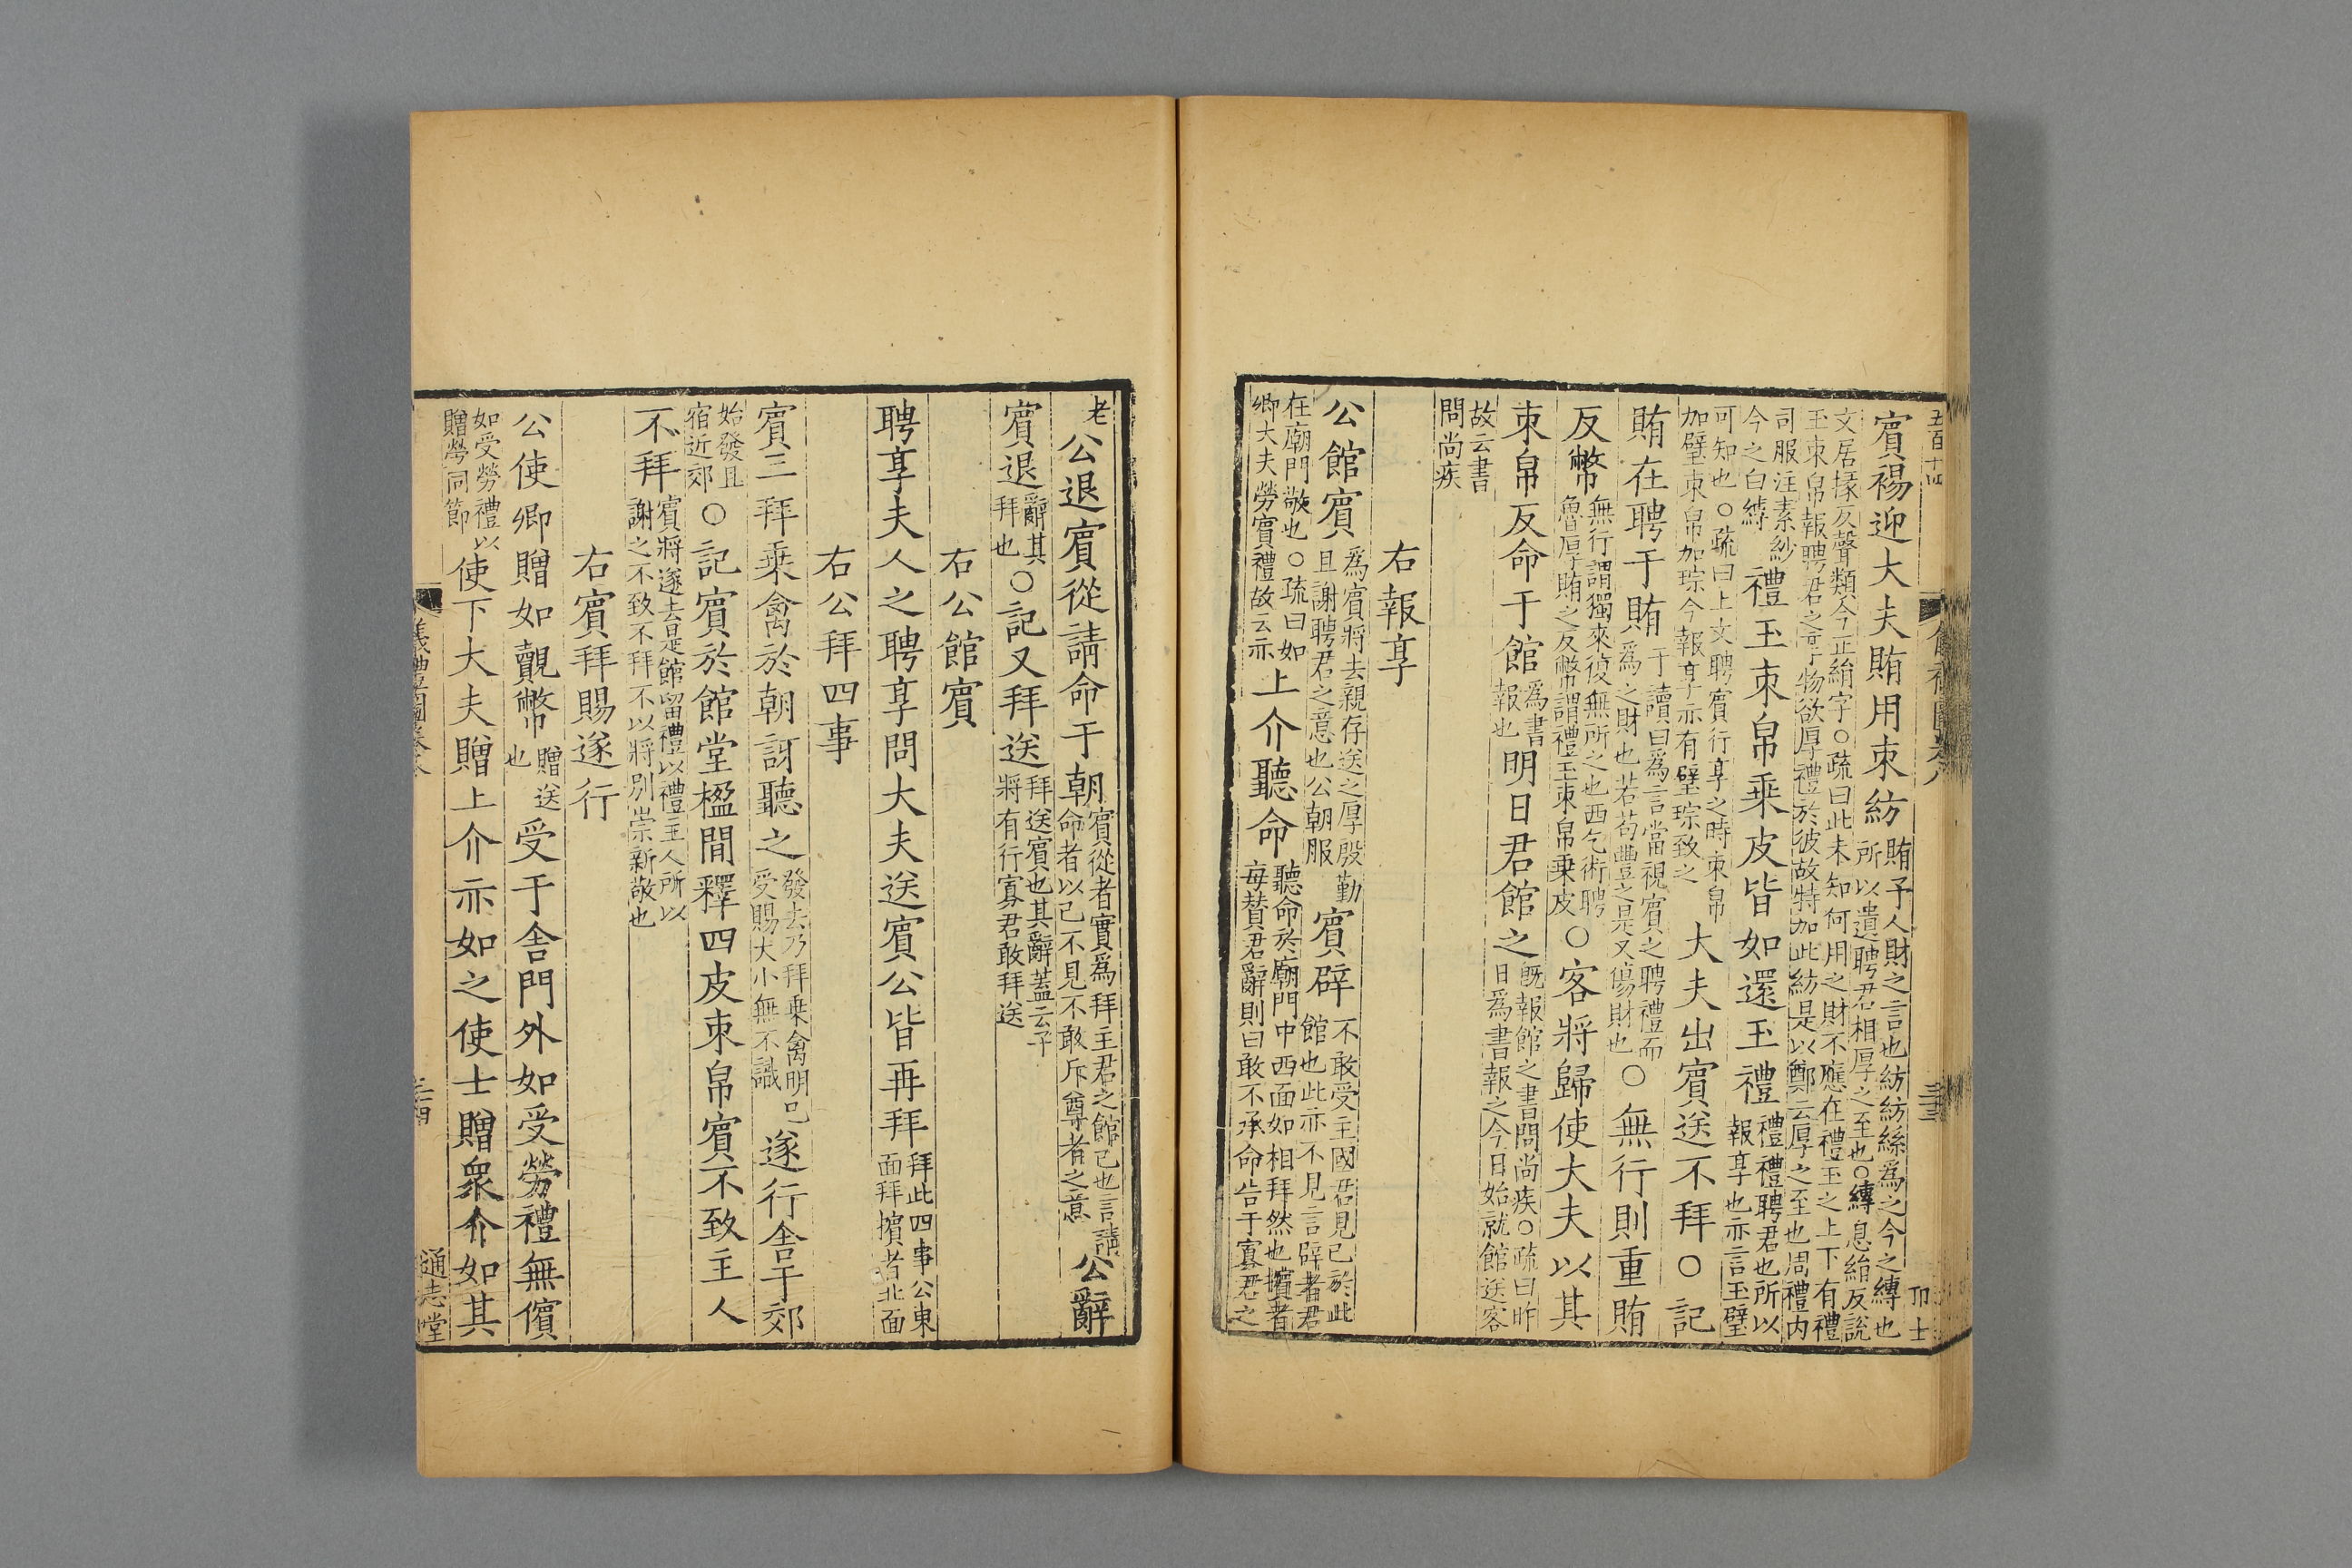 五百十四
賔裼迎大夫賄用束紡 賄予人財之言也紡紡絲爲之今之縳也
所以遺聘君相厚之至也○縳息絹反說
文居掾反聲類今正絹字○疏曰此未知何用之財不應在禮玉之上下有禮
玉束帛報聘君之享物欲厚禮於彼故特加此紡是以鄭云厚之至也周禮内
司服注素紗
今之白縳 禮玉束帛乗皮皆如還玉禮 禮禮聘君也所以
報享也亦言玉璧
可知也○疏曰上文聘賔行享之時束帛
加璧束帛加琮今報享亦有璧琮致之 大夫出賔送不拜○記
賄在聘于賄 于讀曰爲言當視賔之聘禮而
爲之財也若苟豐之是又傷財也 ○無行則重賄
反幣 無行謂獨來復無所之也西乞術聘
魯厚賄之反幣謂禮玉束帛乗皮 ○客將歸使大夫以其
束帛反命于館 爲書
報也 明日君館之 旣報館之書問尚疾○疏曰昨
日爲書報之今日始就館送客
故云書
問尚疾
右報享
公館賔 爲賔將去親存送之厚殷勤
且謝聘君之意也公朝服 賔辟 不敢受主國君見已於此
館也此亦不見言辟者君
在廟門敬也○疏曰如
卿大夫勞賔禮故云亦 上介聽命 聽命於廟門中西面如相拜然也擯者
毎賛君辭則曰敢不承命告于寡君之
老 公退賔從請命于朝 賔從者實爲拜主君之館已也言請
命者以已不見不敢斥尊者之意 公辭
賔退 辭其
拜也 ○記又拜送 拜送賔也其辭葢云子
將有行寡君敢拜送
右公館賔
聘享夫人之聘享問大夫送賔公皆再拜 拜此四事公東
面拜擯者北面
右公拜四事
賔三拜乗禽於朝訝聽之 發去乃拜乗禽明已
受賜大小無不識 遂行舎于郊
始發且
宿近郊 ○記賔於館堂楹間釋四皮束帛賔不致主人
不拜 賔將遂去是館留禮以禮主人所以
謝之不致不拜不以將别崇新敬也
右賔拜賜遂行
公使卿贈如覿幣 贈送
也 受于舎門外如受勞禮無儐
如受勞禮以
贈勞同節 使下大夫贈上介亦如之使士贈衆介如其
通志堂